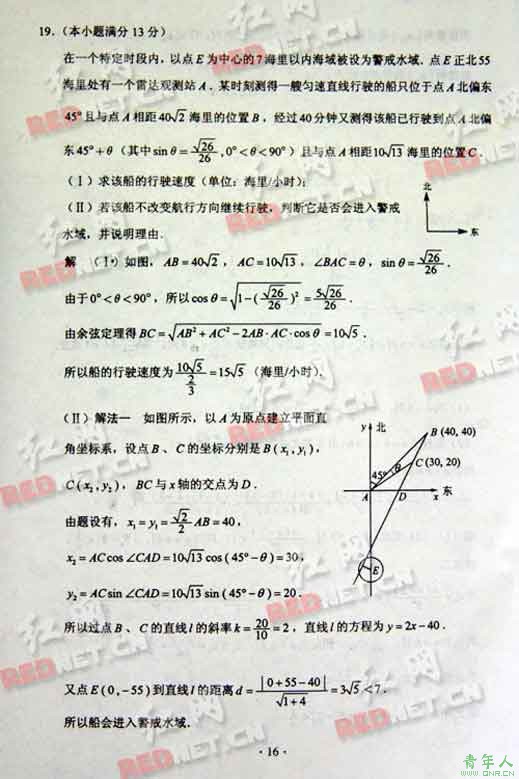 19.（本小题满分 13 分）
在一个特定时段内，以点 E 为中心的 7 海里以内海域被设为警戒水域．点 E 正北 55
海里处有一个雷达观测站 A．某时刻测得一艘匀速直线行驶的船只位于点 A 北偏东
45° 且与点 A 相距 40√2 海里的位置 B，经过 40 分钟又测得该船已行驶到点 A 北偏
东 45°+θ（其中 sin θ = √26/26，0°<θ<90°）且与点 A 相距 10√13 海里的位置 C．
（Ⅰ）求该船的行驶速度（单位：海里/小时）；
（Ⅱ）若该船不改变航行方向继续行驶，判断它是否会进入警戒
水域，并说明理由．
北
东
解 （Ⅰ）如图，AB = 40√2，AC = 10√13，∠BAC = θ，sin θ = √26/26．
由于 0°<θ<90°，所以 cos θ = √(1-(√26/26)²) = 5√26/26．
由余弦定理得 BC = √(AB²+AC²-2AB·AC·cos θ) = 10√5．
所以船的行驶速度为 10√5/(2/3) = 15√5（海里/小时）．
（Ⅱ）解法一 如图所示，以 A 为原点建立平面直
角坐标系，设点 B、C 的坐标分别是 B(x₁, y₁)，
C(x₂, y₂)，BC 与 x 轴的交点为 D．
y 北
B (40, 40)
C (30, 20)
45° θ
A D x 东
E
由题设有，x₁ = y₁ = √2/2 AB = 40，
x₂ = AC cos ∠CAD = 10√13 cos (45°-θ) = 30，
y₂ = AC sin ∠CAD = 10√13 sin (45°-θ) = 20．
所以过点 B、C 的直线 l 的斜率 k = 20/10 = 2，直线 l 的方程为 y = 2x-40．
又点 E(0, -55) 到直线 l 的距离 d = |0+55-40|/√(1+4) = 3√5 < 7．
所以船会进入警戒水域．
· 16 ·
红网
REDNET.CN
青年人
WWW.QNR.CN